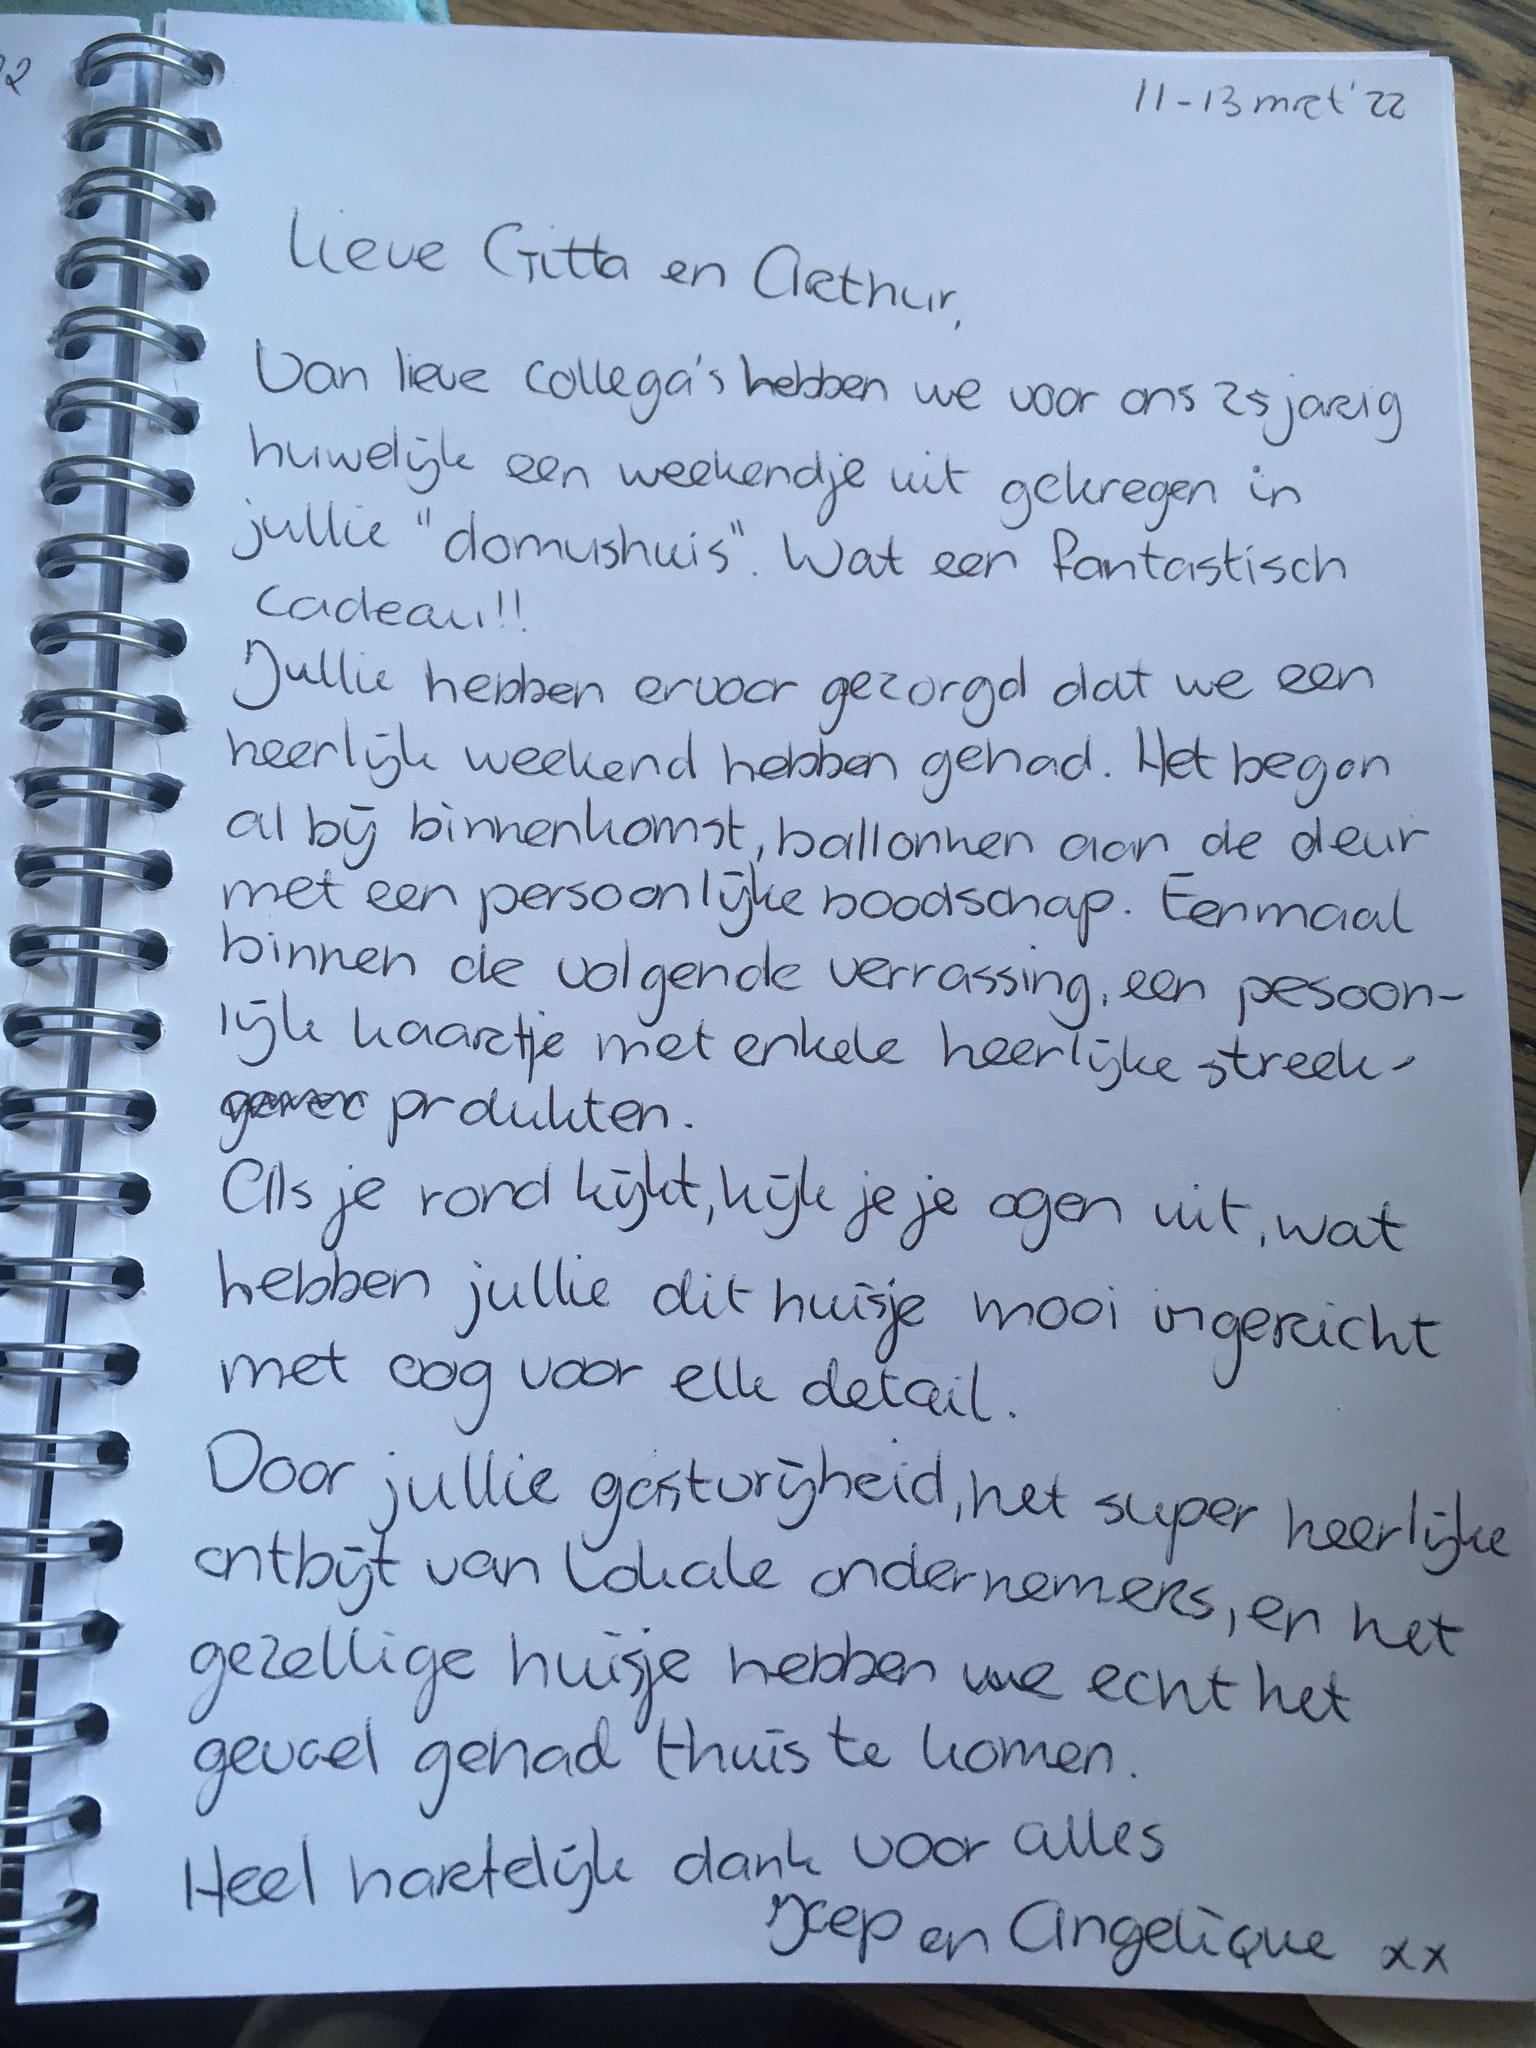 11-13 mrt '22
Lieve Gitta en Arthur,
Van lieve collega's hebben we voor ons 25 jarig
huwelijk een weekendje uit gekregen in
jullie "domushuis". Wat een fantastisch
cadeau!!
Jullie hebben ervoor gezorgd dat we een
heerlijk weekend hebben gehad. Het begon
al bij binnenkomst, ballonnen aan de deur
met een persoonlijke boodschap. Eenmaal
binnen de volgende verrassing, een pesoon-
lijk kaartje met enkele heerlijke streek-
prdukten.
Als je rond kijkt, kijk je je ogen uit, wat
hebben jullie dit huisje mooi ingericht
met oog voor elk detail.
Door jullie gastvrijheid, het super heerlijke
ontbijt van lokale ondernemers, en het
gezellige huisje hebben we echt het
gevoel gehad thuis te komen.
Heel hartelijk dank voor alles
Joep en Angelique xx